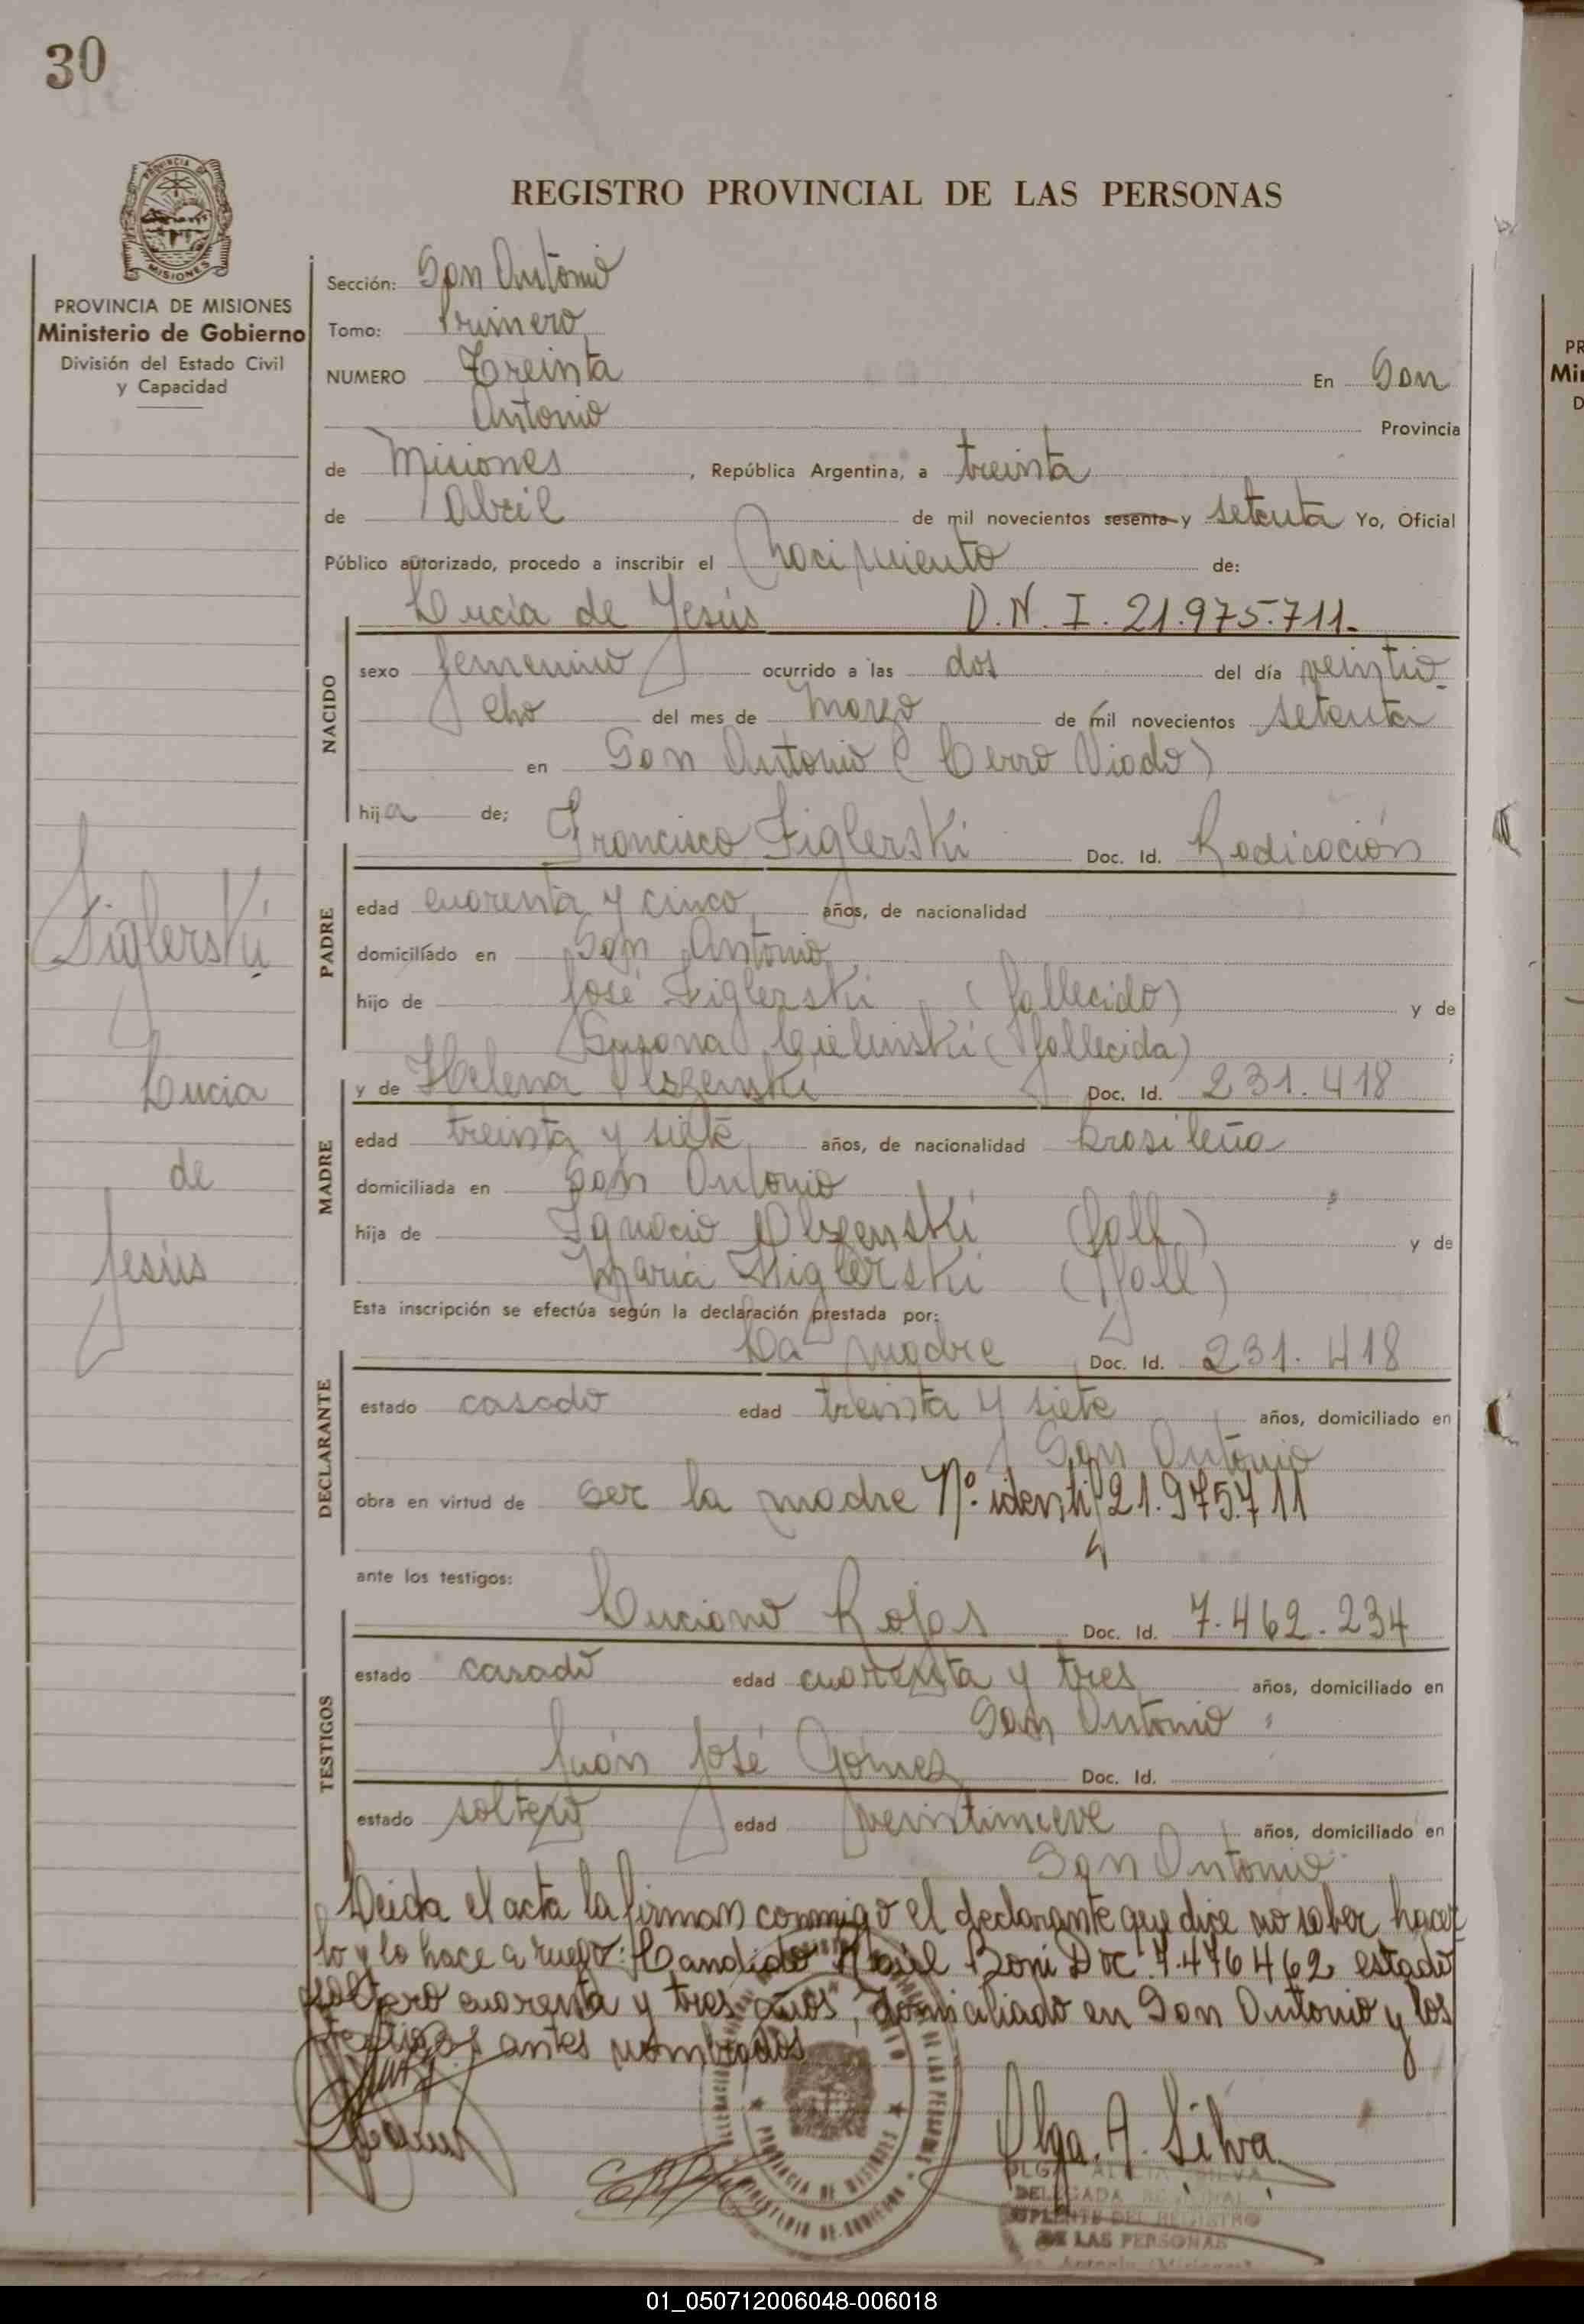 30
PROVINCIA DE MISIONES
Ministerio de Gobierno
División del Estado Civil
y Capacidad
REGISTRO PROVINCIAL DE LAS PERSONAS
Sección: San Antonio
Tomo: Primero
NUMERO Treinta En San
Antonio Provincia
de Misiones, República Argentina, a treinta
de Abril de mil novecientos sesenta y setenta Yo, Oficial
Público autorizado, procedo a inscribir el nacimiento de:
Lucía de Jesús D.N.I. 21.975.711.
NACIDO
sexo femenino ocurrido a las dos del día veintio-
cho del mes de marzo de mil novecientos setenta
en San Antonio (Cerro Viado)
hija de;
Francisco Figlerski Doc. Id. Radicación
PADRE
edad cuarenta y cinco años, de nacionalidad
domiciliado en San Antonio
hijo de José Figlerski (fallecido) y de
Susana Cielinski (fallecida);
y de Helena Olszenski Doc. Id. 231.418
MADRE
edad treinta y siete años, de nacionalidad brasileña
domiciliada en San Antonio
hija de Ignacio Olszenski (fall) y de
María Figlerski (fall)
Esta inscripción se efectúa según la declaración prestada por:
La madre Doc. Id. 231.418
DECLARANTE
estado casado edad treinta y siete años, domiciliado en
San Antonio
obra en virtud de ser la madre Nº identif 21.975.711
ante los testigos:
Luciano Rojas Doc. Id. 7.462.234
TESTIGOS
estado casado edad cuarenta y tres años, domiciliado en
San Antonio
Juán José Gómez Doc. Id.
estado soltero edad veintinueve años, domiciliado en
San Antonio
Leida el acta la firman conmigo el declarante que dice no saber hacer
lo y lo hace a ruego: Candido Raúl Boni Doc. 7.476462 estado
soltero cuarenta y tres años, domiciliado en San Antonio y los
testigos antes nombrados
Olga. A. Silva
OLGA ALICIA SILVA
DELEGADA REGIONAL
SUPLENTE DEL REGISTRO
DE LAS PERSONAS
PROVINCIA DE MISIONES
MINISTERIO DE GOBIERNO
Figlerski
Lucia
de
Jesús
01_050712006048-006018